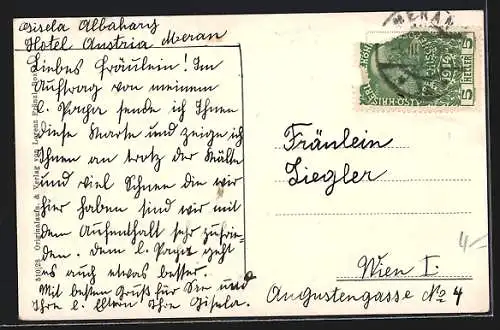 Gisela Albahary
Hotel Austria Meran
Liebes Fräulein! Im
Auftrag von meinem
l. Papa sende ich Ihnen
diese Marke und zeige ich
Ihnen an trotz der Kälte
und viel Schnee die wir
hier haben sind wir mit
dem Aufenthalt sehr zufrie-
den. Dem l. Papa geht
es auch etwas besser.
Mit besten Gruß für Sie und
Ihre l. Eltern Ihre Gisela.
Originalaufn. & Verlag von Lorenz
MERAN
5 HELLER 5
1914
Fräulein
Ziegler
Wien I.
Augustengasse No 4
4-